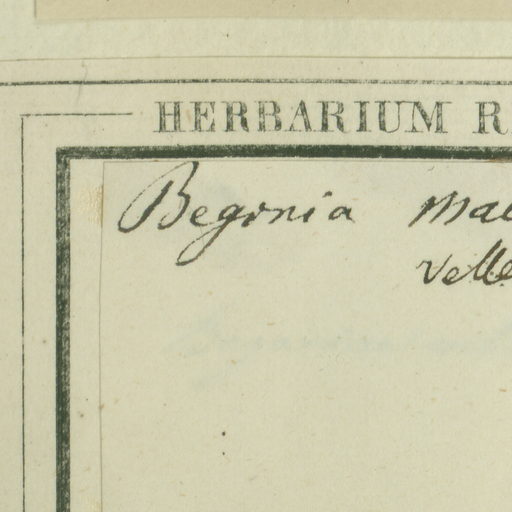 HERBARIUM R
Begonia mal
velle